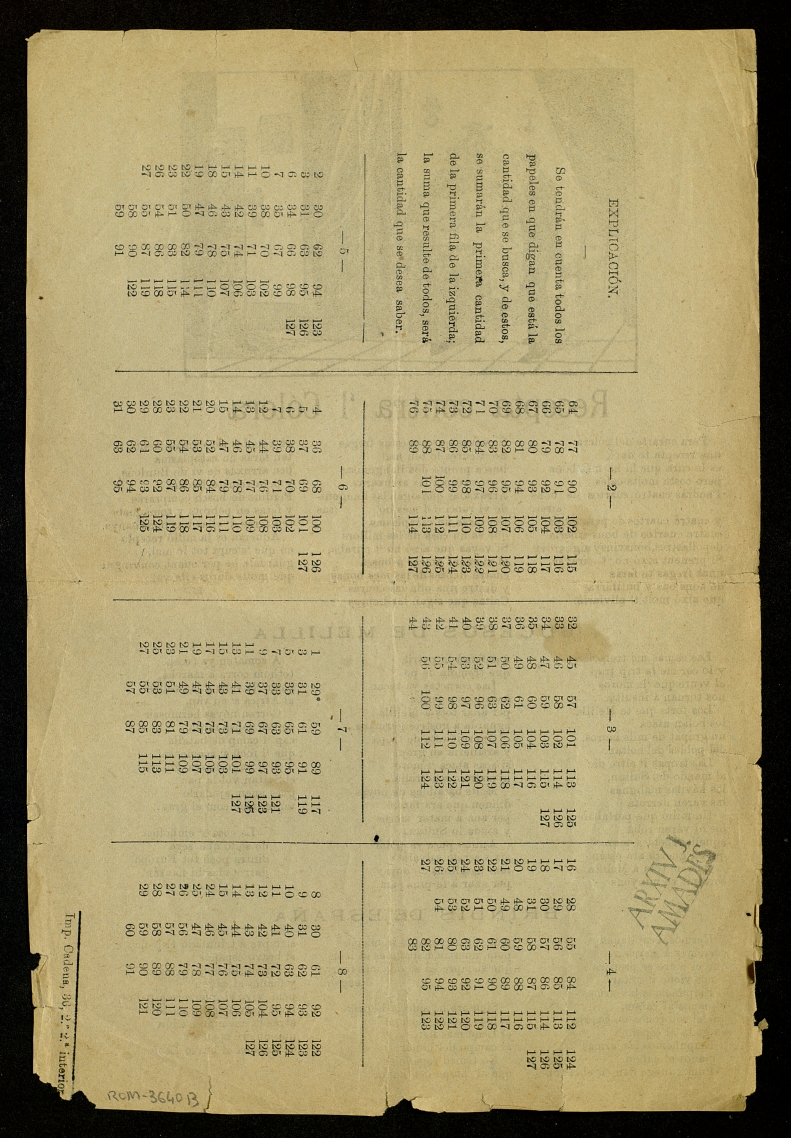 EXPLICACIÓN.
Se tendrán en cuenta todos los
papeles en que digan que está la
cantidad que se busca, y de estos,
se sumarán la primera cantidad
de la primera fila de la izquierda;
la suma que resulte de todos, será
la cantidad que se desea saber.
— 2 —
64 77 90 102 115
65 78 91 103 116
66 79 92 104 117
67 80 93 105 118
68 81 94 106 119
69 82 95 107 120
70 83 96 108 121
71 84 97 109 122
72 85 98 110 123
73 86 99 111 124
74 87 100 112 125
75 88 101 113 126
76 89 114 127
— 3 —
32 45 57 101 113 125
33 46 58 102 114 126
34 47 59 103 115 127
35 48 60 104 116
36 49 61 105 117
37 50 62 106 118
38 51 63 107 119
39 52 96 108 120
40 53 97 109 121
41 54 98 110 122
42 55 99 111 123
43 56 100 112 124
44
— 4 —
16 28 55 84 112 124
17 29 56 85 113 125
18 30 57 86 114 126
19 31 58 87 115 127
20 48 59 88 116
21 49 60 89 117
22 50 61 90 118
23 51 62 91 119
24 52 63 92 120
25 53 80 93 121
26 54 81 94 122
27 82 95 123
83
— 5 —
2 30 62 94 123
3 31 63 95 126
6 34 66 98 127
7 35 67 99
10 38 70 102
11 39 71 103
14 42 74 106
15 43 75 107
18 46 78 110
19 47 79 111
22 50 82 114
23 51 83 115
26 54 86 118
27 55 87 119
58 90 122
59 91
— 6 —
4 36 68 100 126
5 37 69 101 127
6 38 70 102
7 39 71 103
12 44 76 108
13 45 77 109
14 46 78 110
15 47 79 111
20 52 84 116
21 53 85 117
22 54 86 118
23 55 87 119
28 60 92 124
29 61 93 125
30 62 94
31 63 95
— 7 —
1 29 59 89 117
3 31 61 91 119
5 35 65 95
7 33 63 93 121
9 37 67 97 123
11 39 69 99 125
13 41 71 101 127
15 43 73 103
17 45 75 105
19 47 77 107
21 49 79 109
23 51 81 111
25 53 83 113
27 55 85 115
57 87
— 8 —
8 30 61 92 122
9 31 62 93 123
10 40 63 94 124
11 41 72 95 125
12 42 73 104 126
13 43 74 105 127
14 44 75 106
15 45 76 107
24 46 77 108
25 47 78 109
26 56 79 110
27 57 88 111
28 58 89 120
29 59 90 121
60 91
Imp. Cadena, 36, 2.º 2.ª interior
ARXIU J.
AMADES
ROM-3640 B